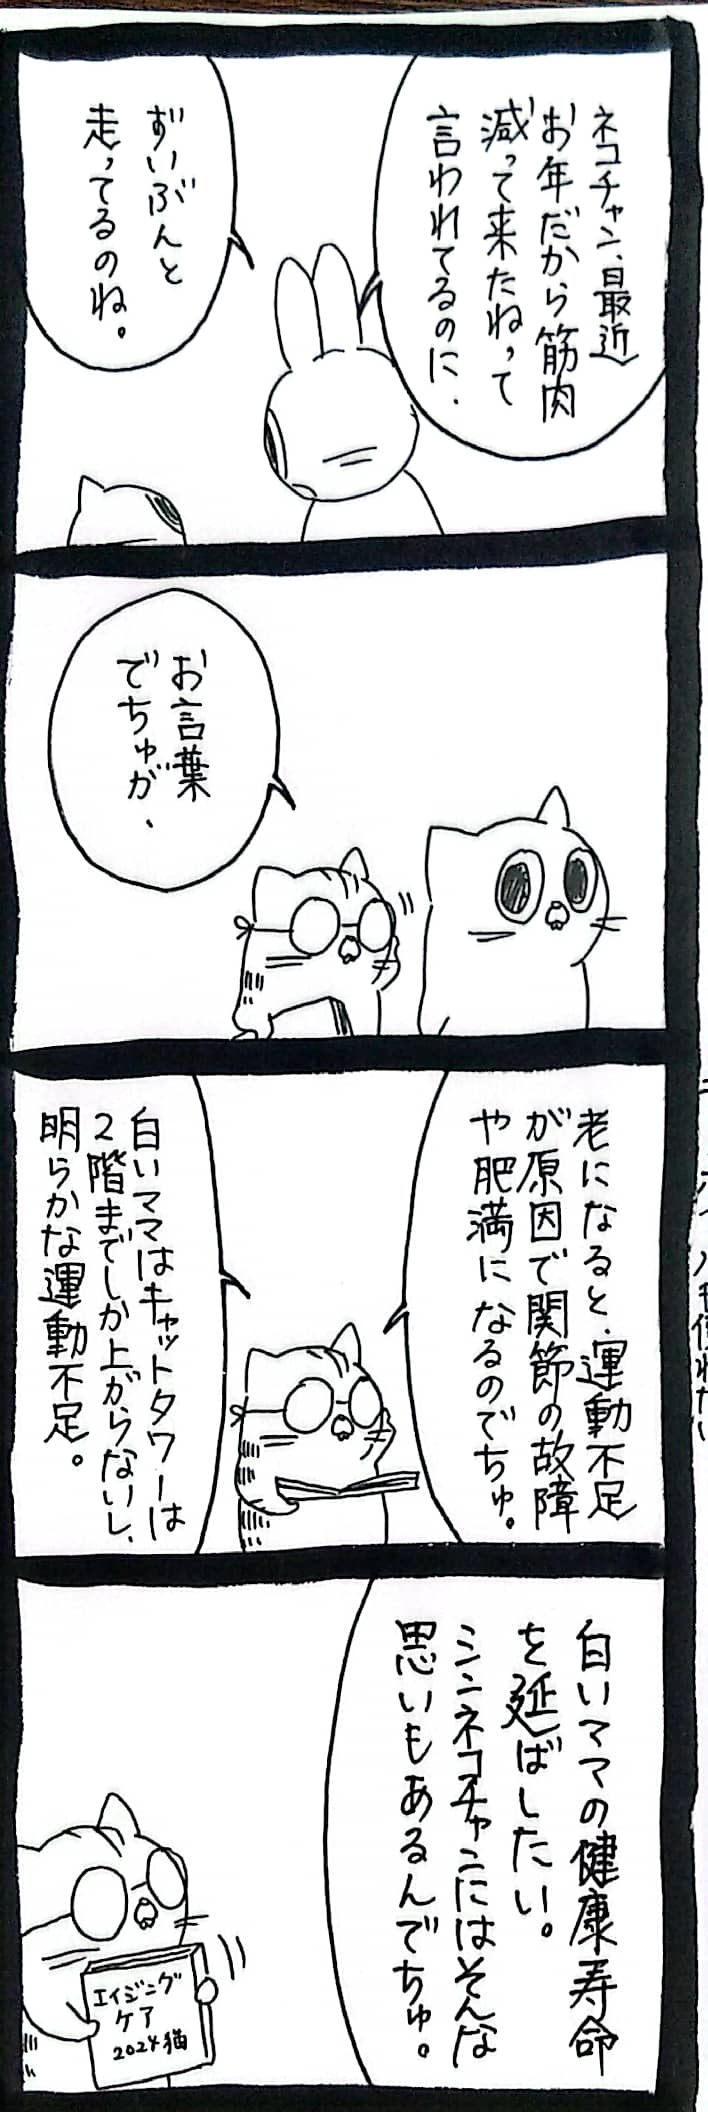 ネコチャン、最近
お年だから筋肉
減って来たねって
言われてるのに、
ずいぶんと
走ってるのね。
お言葉
でちゅが、
老になると、運動不足
が原因で関節の故障
や肥満になるのでちゅ。
白いママはキャットタワーは
2階までしか上がらないし、
明らかな運動不足。
白いママの健康寿命
を延ばしたい。
シンネコチャンにはそんな
思いもあるんでちゅ。
エイジング
ケア
2024猫